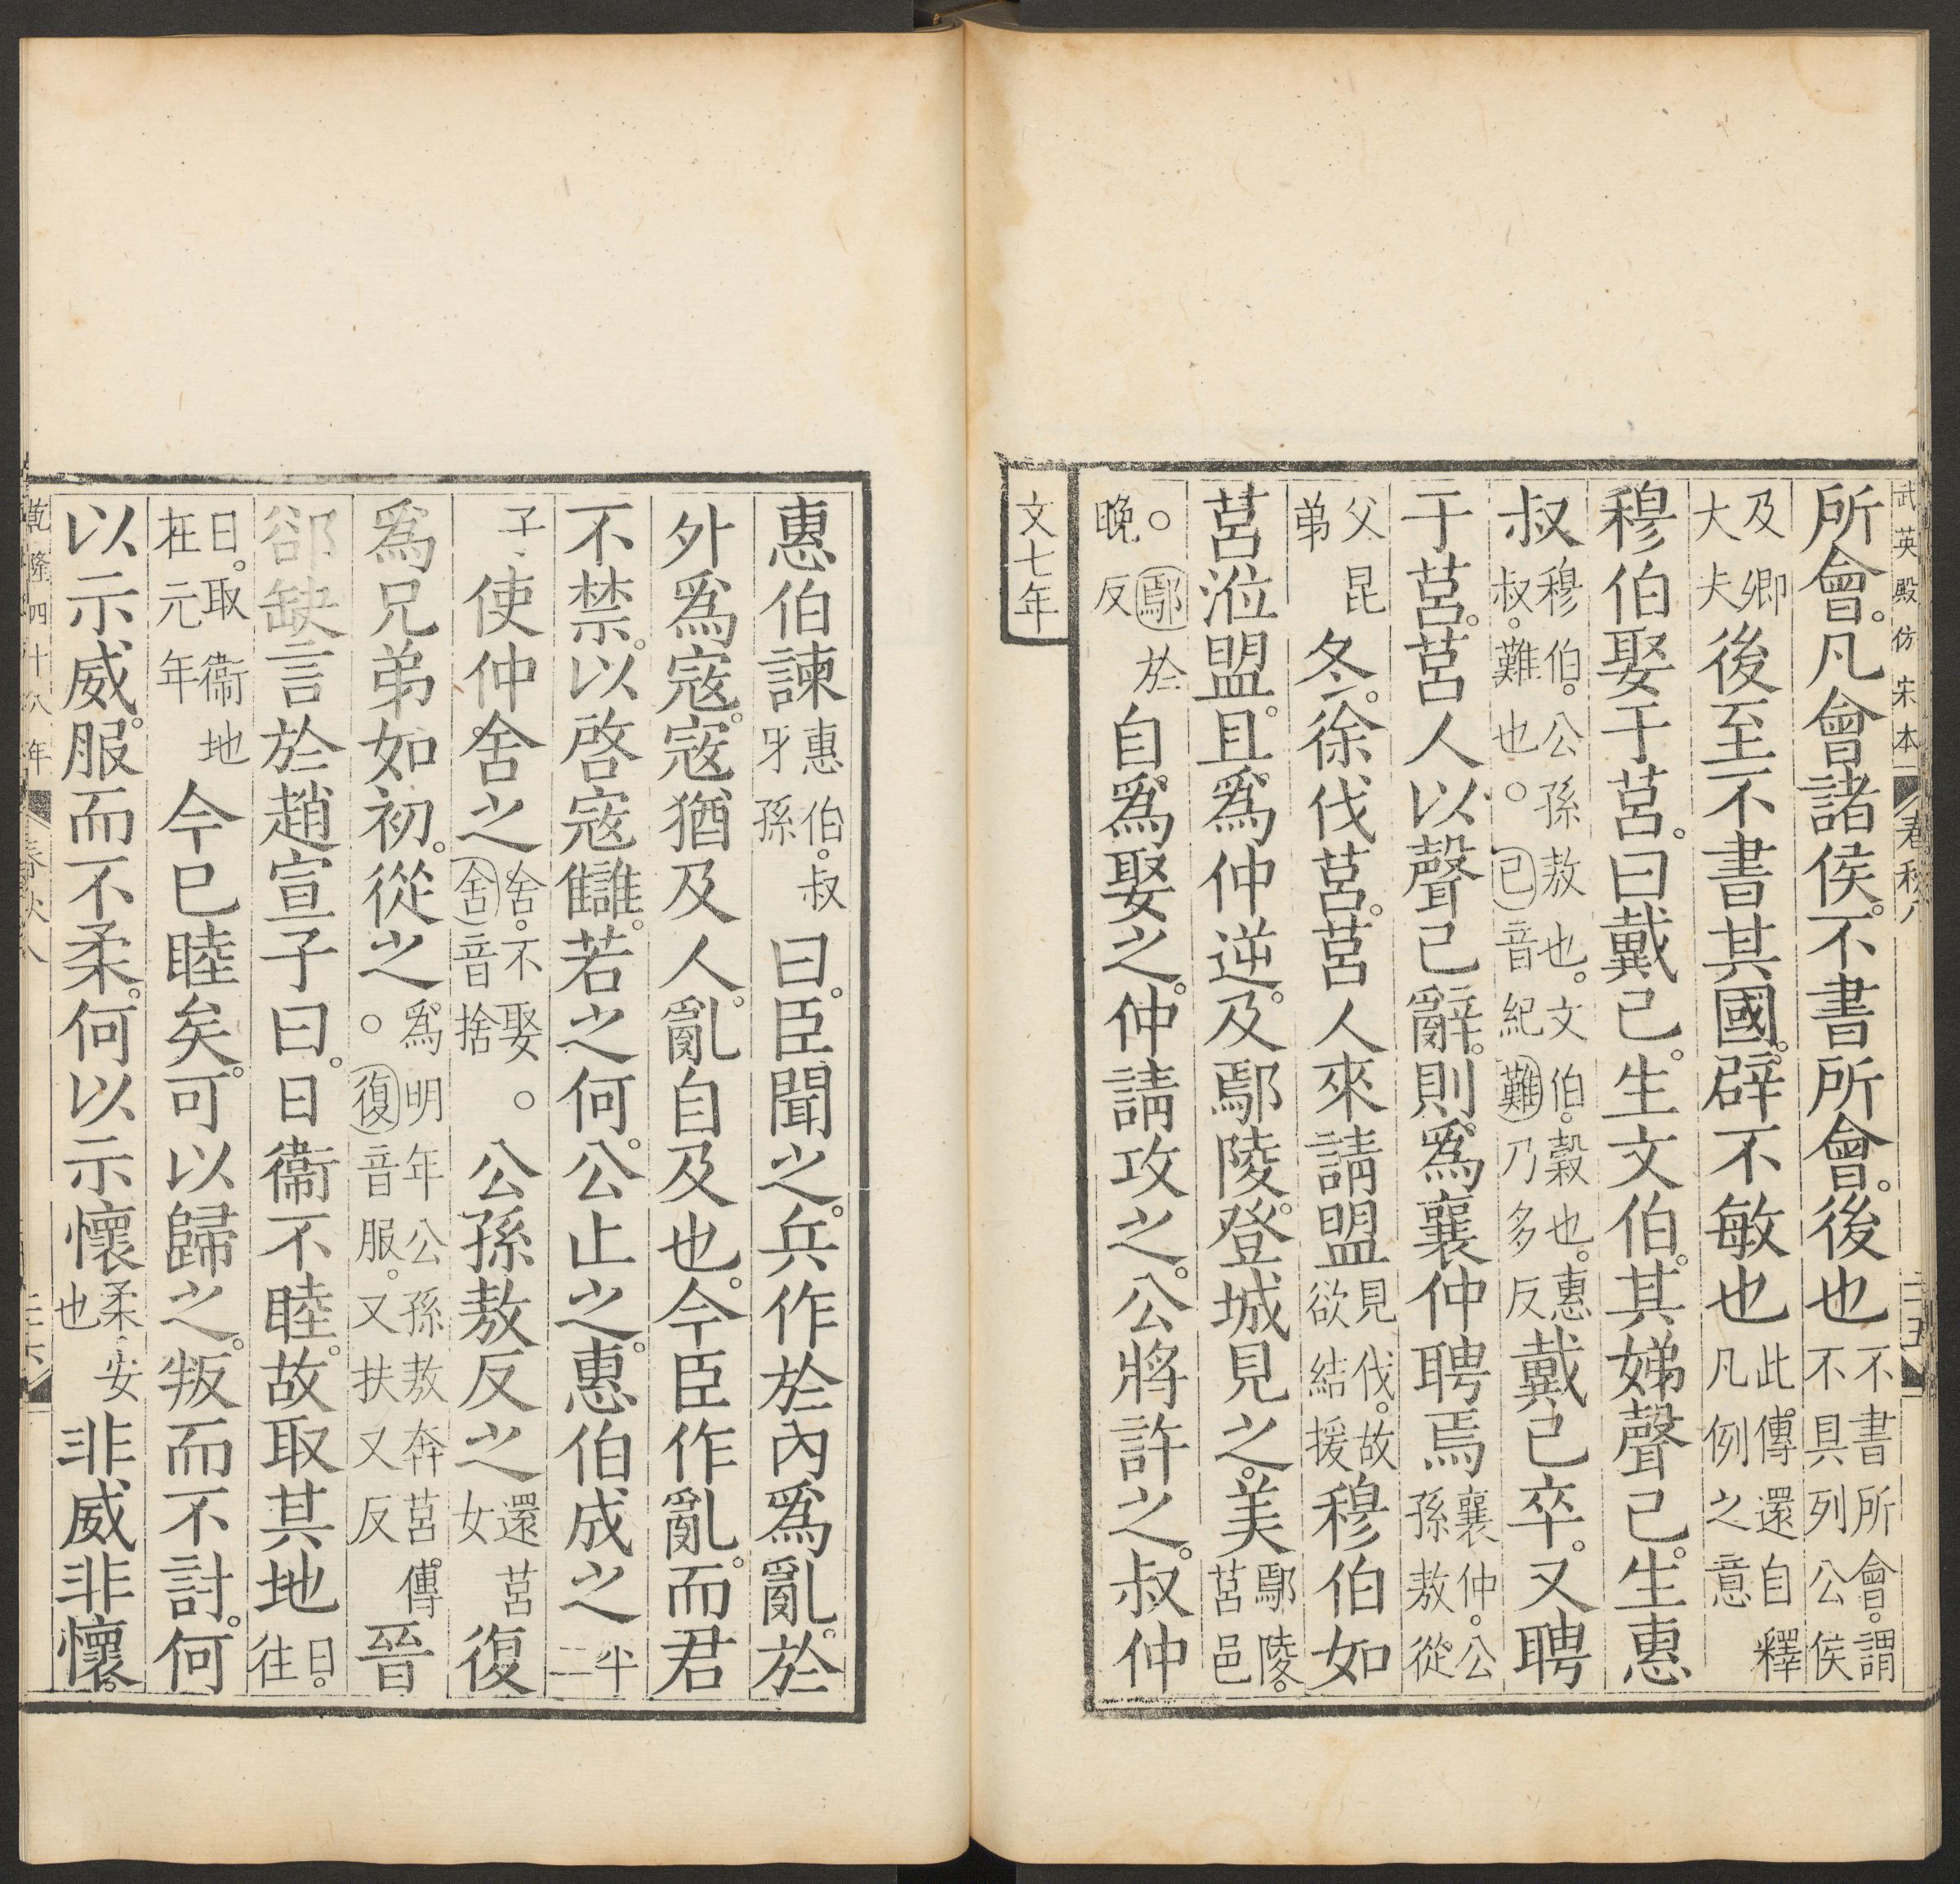 武英殿仿宋本 春秋八
所會。凡會諸侯。不書所會。後也不書所會。謂不具列公侯
及卿大夫後至不書其國。辟不敏也此傳還自釋凡例之意
穆伯娶于莒。曰戴己。生文伯。其娣聲己。生惠
叔穆伯。公孫敖也。文伯。穀也。惠叔。難也。○己音紀難乃多反戴己卒。又聘
于莒。莒人以聲己辭。則爲襄仲聘焉襄仲。公孫敖從
父昆弟冬。徐伐莒。莒人來請盟見伐。故欲結援穆伯如
莒涖盟。且爲仲逆。及鄢陵。登城見之。美鄢陵。莒邑
○鄢於晚反自爲娶之。仲請攻之。公將許之。叔仲
文七年
惠伯諫惠伯。叔牙孫曰。臣聞之。兵作於內爲亂。於
外爲寇。寇猶及人。亂自及也。今臣作亂。而君
不禁。以啓寇讎。若之何。公止之。惠伯成之平二
子、使仲舍之舍。不娶○舍音捨公孫敖反之還莒女復
爲兄弟如初。從之爲明年公孫敖奔莒傳○復音服。又扶又反晉
郤缺言於趙宣子曰。日衞不睦。故取其地日。往
日。取衞地在元年今已睦矣。可以歸之。叛而不討。何
以示威。服而不柔。何以示懷柔、安也非威非懷。
乾隆四十八年 春秋八